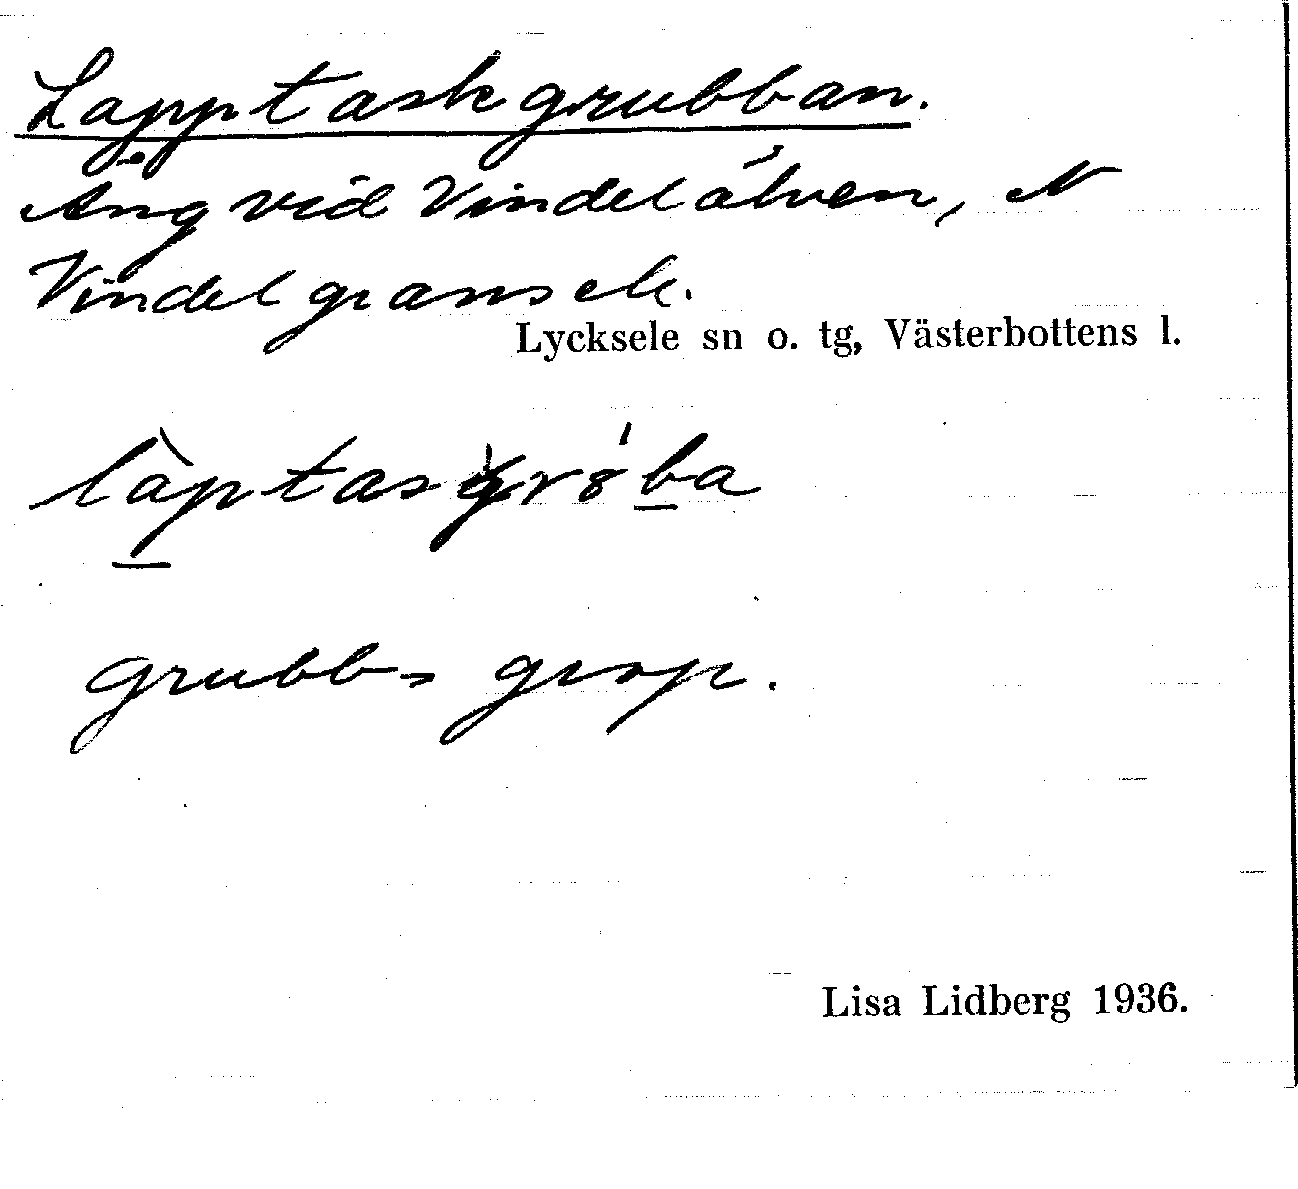 Lapptaskgrubban.
Äng vid Vindelälven, N
Vindelgransele.
Lycksele sn o. tg, Västerbottens l.
grubb = grop.
Lisa Lidberg 1936.